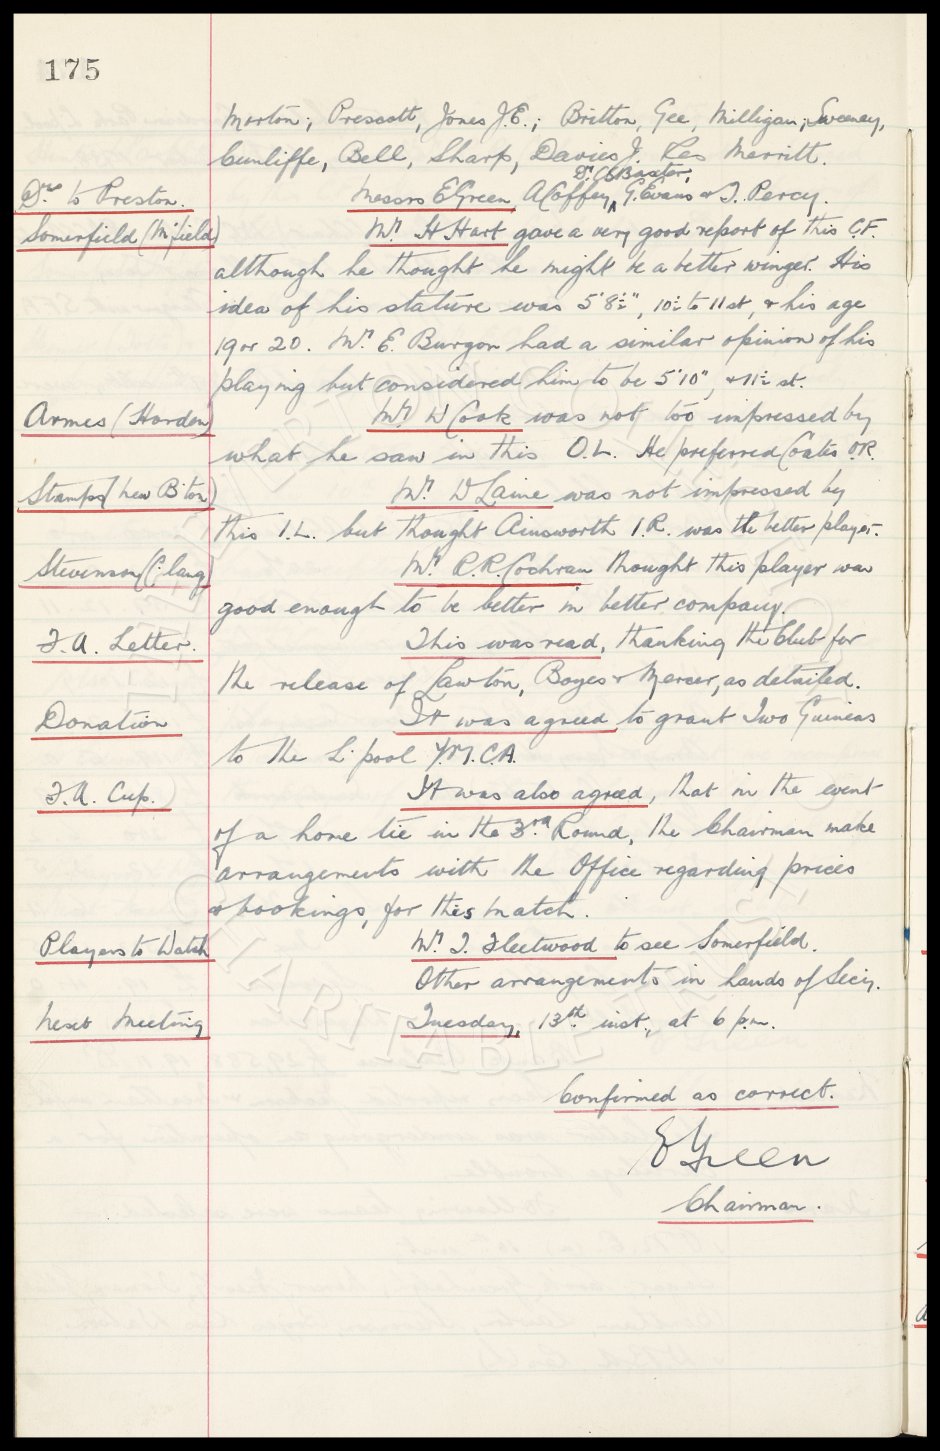 175
Morton; Prescott, Jones J.E.; Britton, Gee, Milligan; Sweeney,
Cunliffe, Bell, Sharp, Davies J. Res Merritt.
Dr. C.S. Baxter,
Drs to Preston. Messrs E Green, A Coffey, G. Evans & T. Percy.
Somerfield (M'field) Mr H Hart gave a very good report of this C.F.
although he thought he might be a better winger. His
idea of his stature was 5'8½", 10½ to 11 st, & his age
19 or 20. Mr E. Burgon had a similar opinion of his
playing but considered him to be 5'10", & 11½ st.
Armes (Horden) Mr W Cook was not too impressed by
what he saw in this O.L. He preferred Coates O.R.
Stamps (New B'ton) Mr D Laine was not impressed by
this I.L. but thought Ainsworth I.R. was the better player.
Stevenson (C'lang) Mr R.R. Cochran thought this player was
good enough to be better in better company.
F.A. Letter. This was read, thanking the Club for
the release of Lawton, Boyes & Mercer, as detailed.
Donation It was agreed to grant Two Guineas
to the L'pool Y.M.C.A.
F.A. Cup. It was also agreed, that in the event
of a home tie in the 3rd Round, the Chairman make
arrangements with the Office regarding prices
& bookings, for this match.
Players to Watch Mr T. Fleetwood to see Somerfield.
Other arrangements in hands of Secy.
Next Meeting Tuesday, 13th inst., at 6 p.m.
Confirmed as correct.
E Green
Chairman.
CHARITABLE TRUST